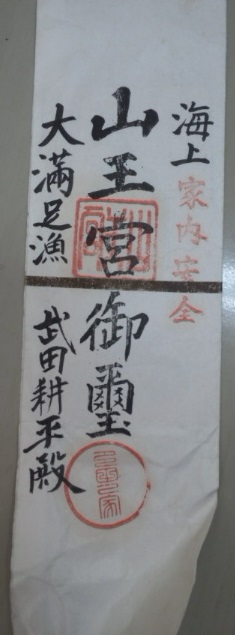 海上家内安全
山王宮御璽
大満足漁 武田耕平殿